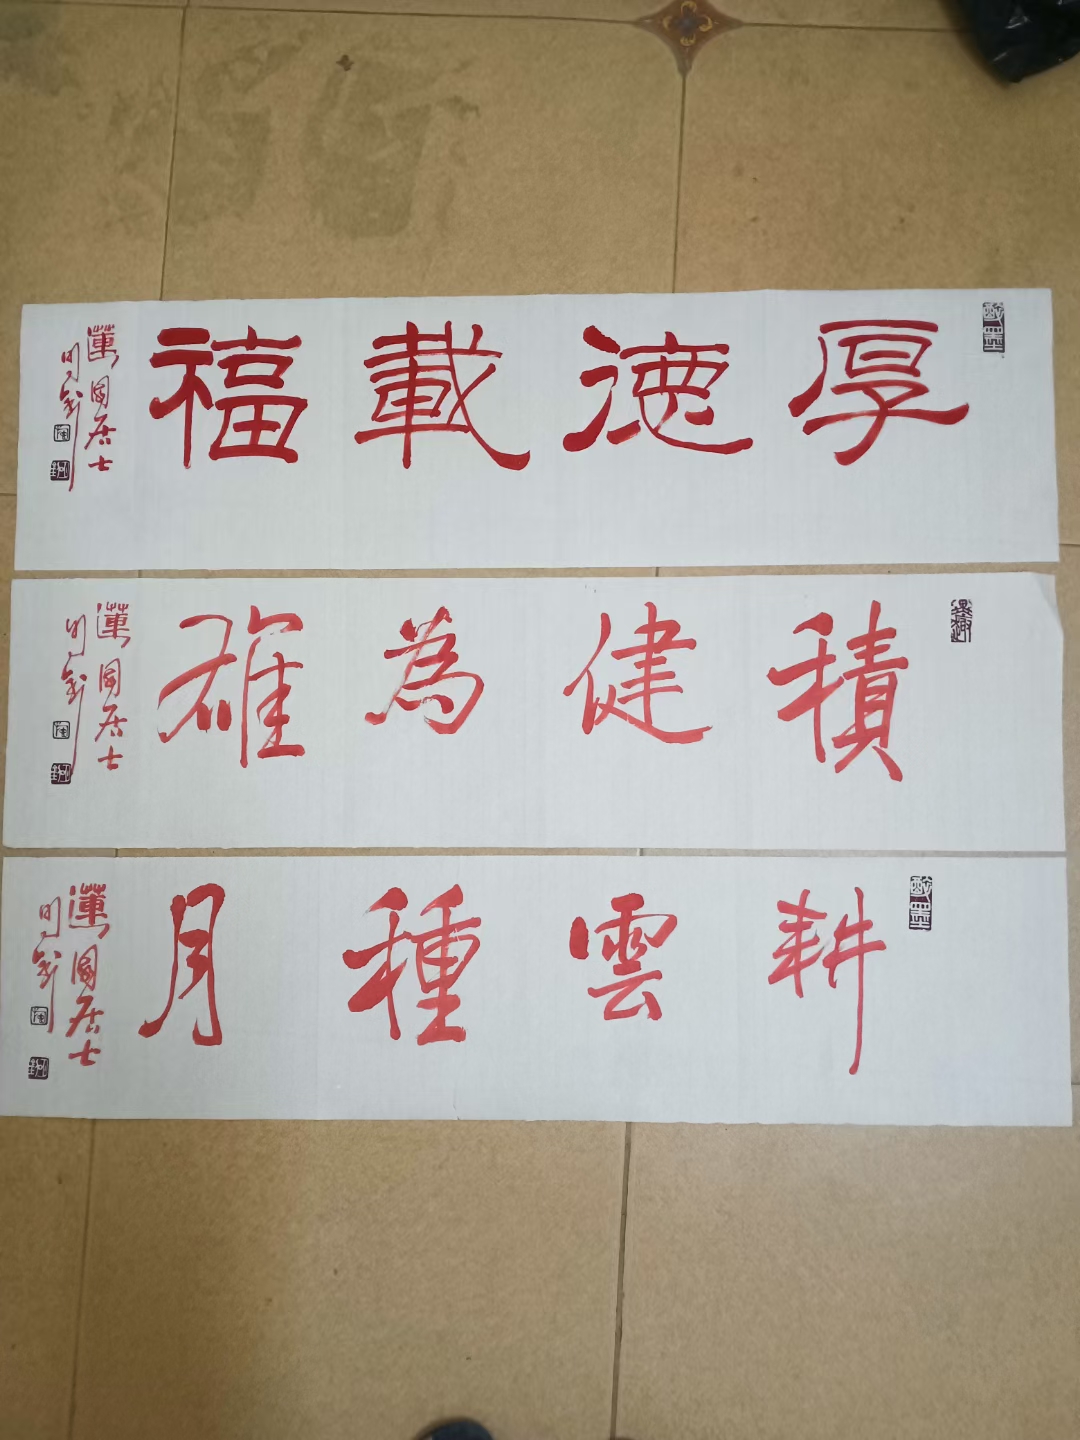 厚德載福
蓮園居士
積健為雄
蓮園居士
耕雲種月
蓮園居士